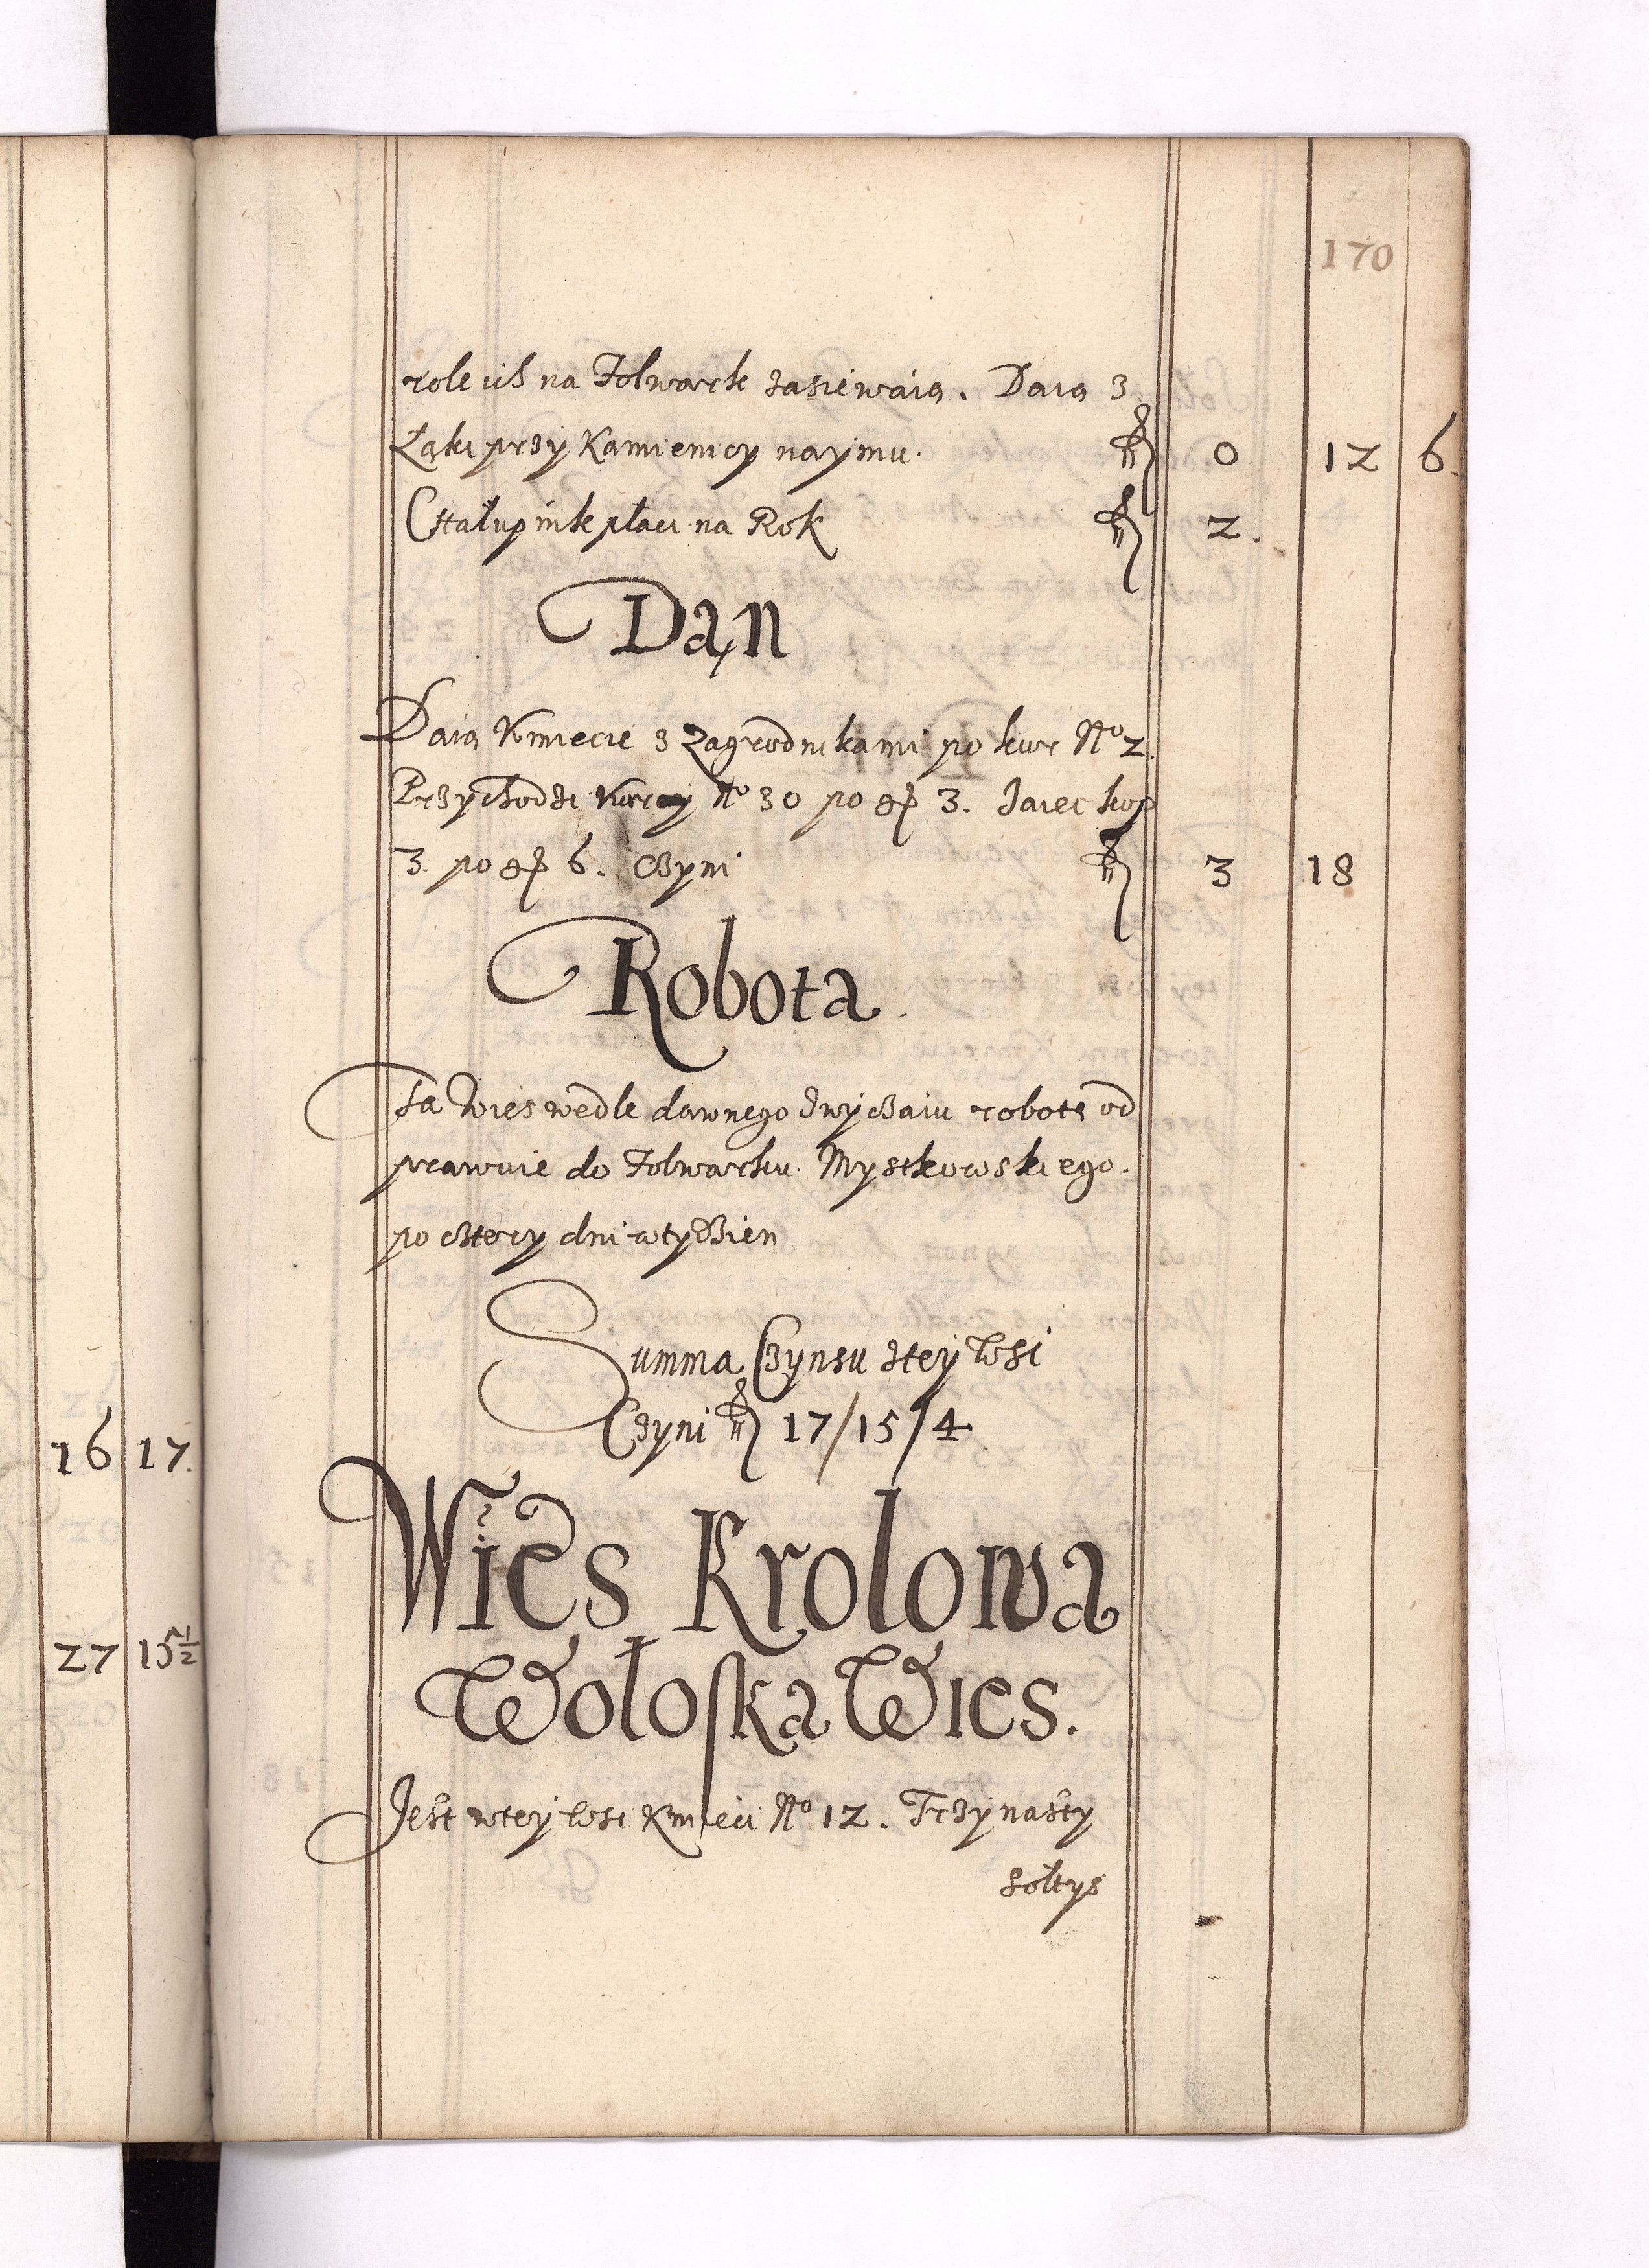 170
role ich na Folwark zasiewaią. Daią z
Łąki przy Kamienicy naymu. fl 0 12 6
Chałupnik płaci na Rok fl 2.
Dan
Daią Kmiecie z Zagrodnikami po kur No 2.
Przychodzi Kurcy No 30 po gr 3. Jaiec kop
3 po gr 6. Czyni fl 3 18
Robota
Ta Wies wedle dawnego zwyczaiu robotę od
prawuie do Folwarku Mystkowskiego.
po cztery dni w tydzien
Summa Czynsu z tey Wsi
Czyni fl 17/15/4
Wies Krolowa
Wołoska Wies.
Jest w tey wsi Kmieci No 12. Trzynasty
sołtys
16 17.
27 15½